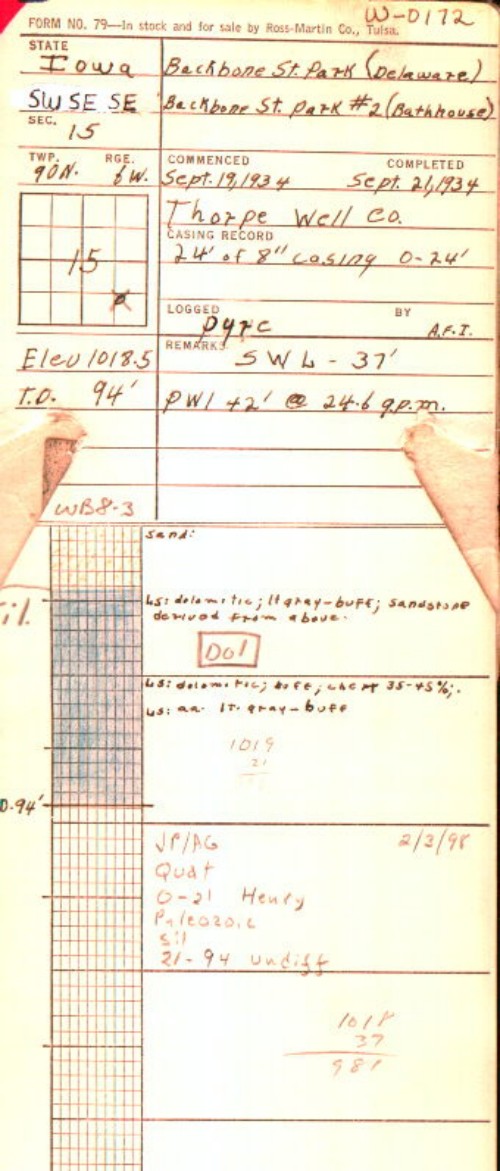 W-0172
FORM NO. 79—In stock and for sale by Ross-Martin Co., Tulsa.
STATE
Iowa
Backbone St. Park (Delaware)
SW SE SE
Backbone St. Park #2 (Bathhouse)
SEC.
15
TWP. RGE.
90N. 6W.
COMMENCED COMPLETED
Sept. 19, 1934 Sept. 21, 1934
Thorpe Well Co.
CASING RECORD
24' of 8" casing 0-24'
15
LOGGED BY
A.F.I.
REMARKS
SWL - 37'
Elev 1018.5
T.D. 94'
PWL 42' @ 24.6 g.p.m.
WB8-3
sand:
Sil.
Ls: dolomitic; lt gray-buff; sandstone
derived from above.
Dol
Ls: dolomitic; buff; chert 35-45%;.
Ls: aa. lt. gray-buff
1019
21
D-94'
JP/AG 2/3/98
Quat
0-21 Henry
Paleozoic
Sil
21-94 undiff
1018
37
981